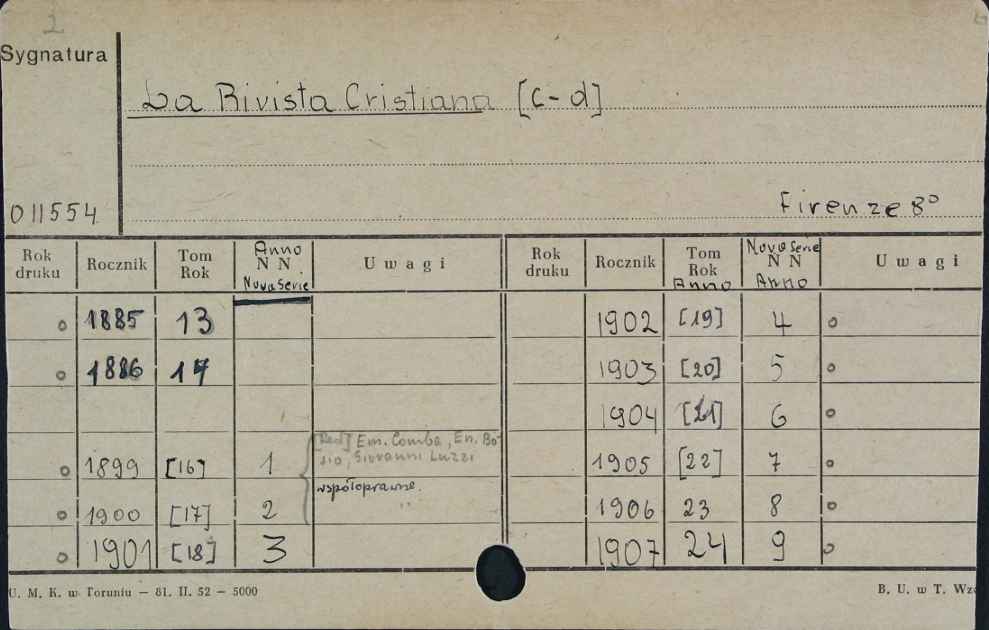 2
Sygnatura
La Rivista Cristiana [c-d]
011554
Firenze 8°
Rok druku Rocznik Tom Rok Anno N N Nova Serie Uwagi Rok druku Rocznik Tom Rok Anno Nova Serie N N Anno Uwagi
1885 13 1902 [19] 4
1886 14 1903 [20] 5
1904 [21] 6
[Red] Em. Comba, En. Bo-
1899 [16] 1 sio, Giovanni Luzzi 1905 [22] 7
współoprawne.
1900 [17] 2 " 1906 23 8
1901 [18] 3 1907 24 9
U. M. K. w Toruniu — 81. II. 52 — 5000 B. U. w T.